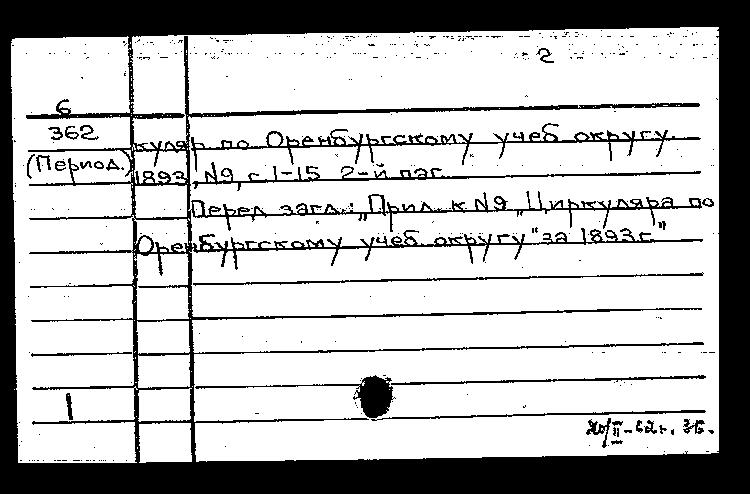 2
6
362
(Период.)
куляр по Оренбургскому учеб округу.
1893, №9, с. 1-15 2-й паг.
Перед загл.: „Прил. к №9 „Циркуляра по
Оренбургскому учеб. округу" за 1893 г."
1
20/II-62 г. ЗБ.